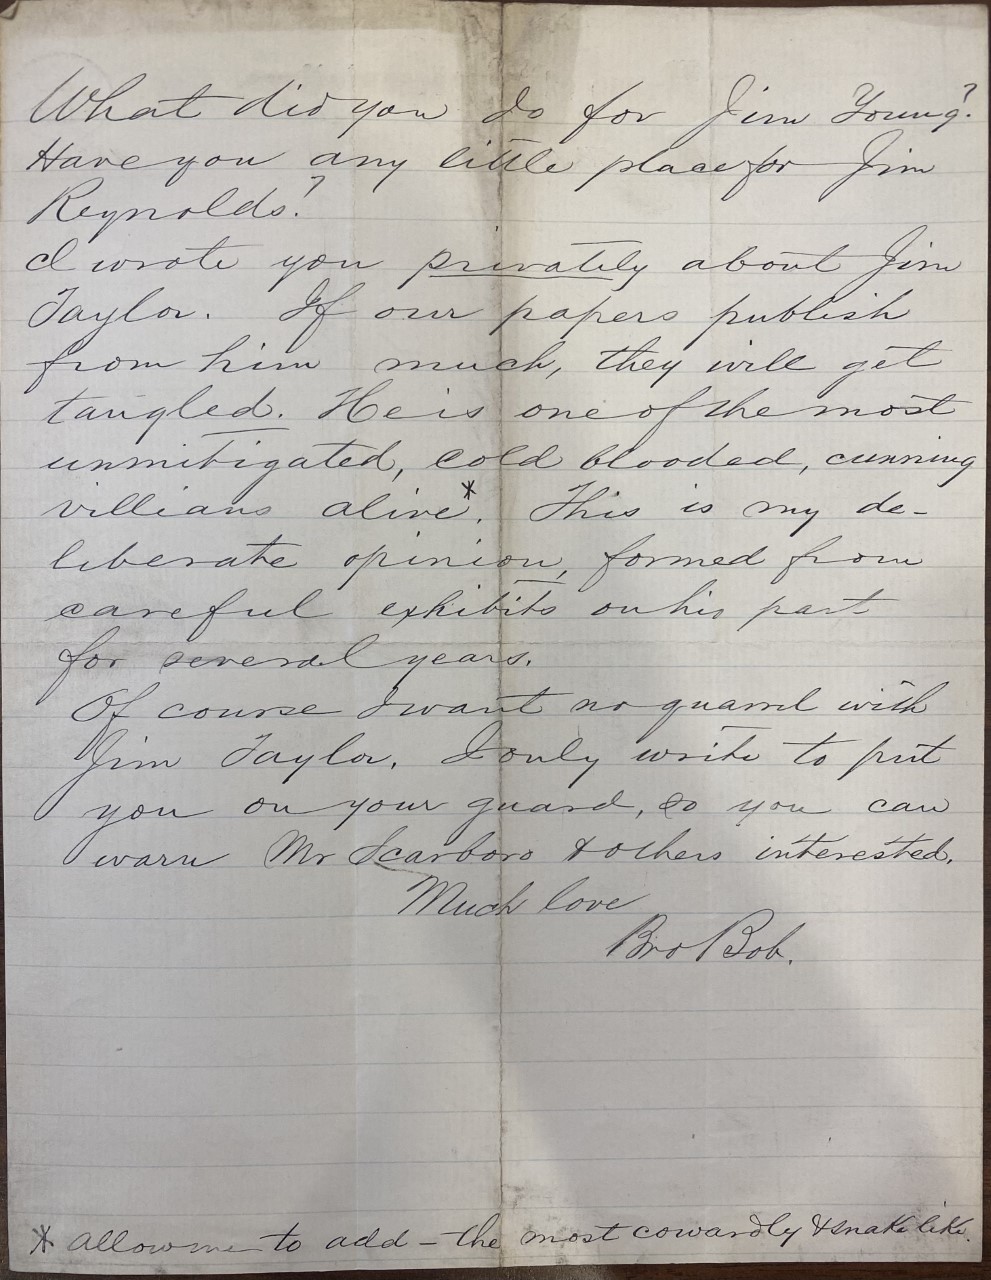 What did you do for Jim Young?
Have you any little place for Jim
Reynolds?
I wrote you privately about Jim
Taylor. If our papers publish
from him much, they will get
tangled. He is one of the most
unmitigated, cold blooded, cunning
villians alive*. This is my de-
liberate opinion, formed from
careful exhibits on his part
for several years.
Of course I want no quarrel with
Jim Taylor. I only write to put
you on your guard, so you can
warn Mr Scarboro & others interested.
Much love
Bro Bob.
* allow me to add - the most cowardly & snake like.